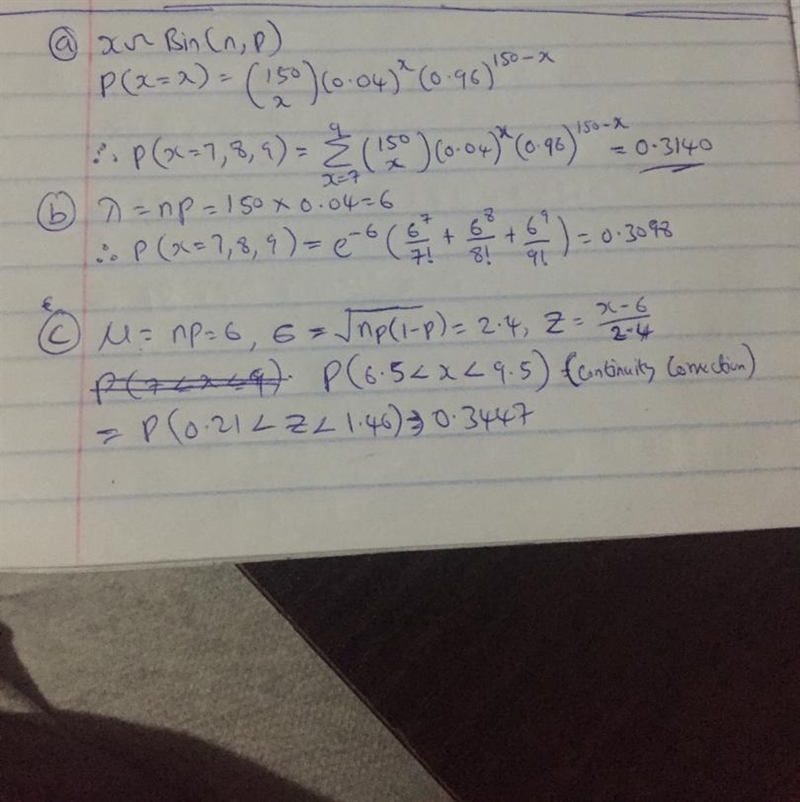 (a) x ~ Bin(n, p)
P(x = x) = (150 x) (0.04)^x (0.96)^150-x
∴ P(x = 7, 8, 9) = 9 Σ x=7 (150 x) (0.04)^x (0.96)^150-x = 0.3140
(b) λ = np = 150 × 0.04 = 6
∴ P(x = 7, 8, 9) = e^-6 (6^7/7! + 6^8/8! + 6^9/9!) = 0.3098
(c) μ = np = 6, σ = √np(1-p) = 2.4, Z = x-6/2.4
P(7 < x < 9). P(6.5 < x < 9.5) (Continuity Correction)
= P(0.21 < Z < 1.46) ⇒ 0.3447